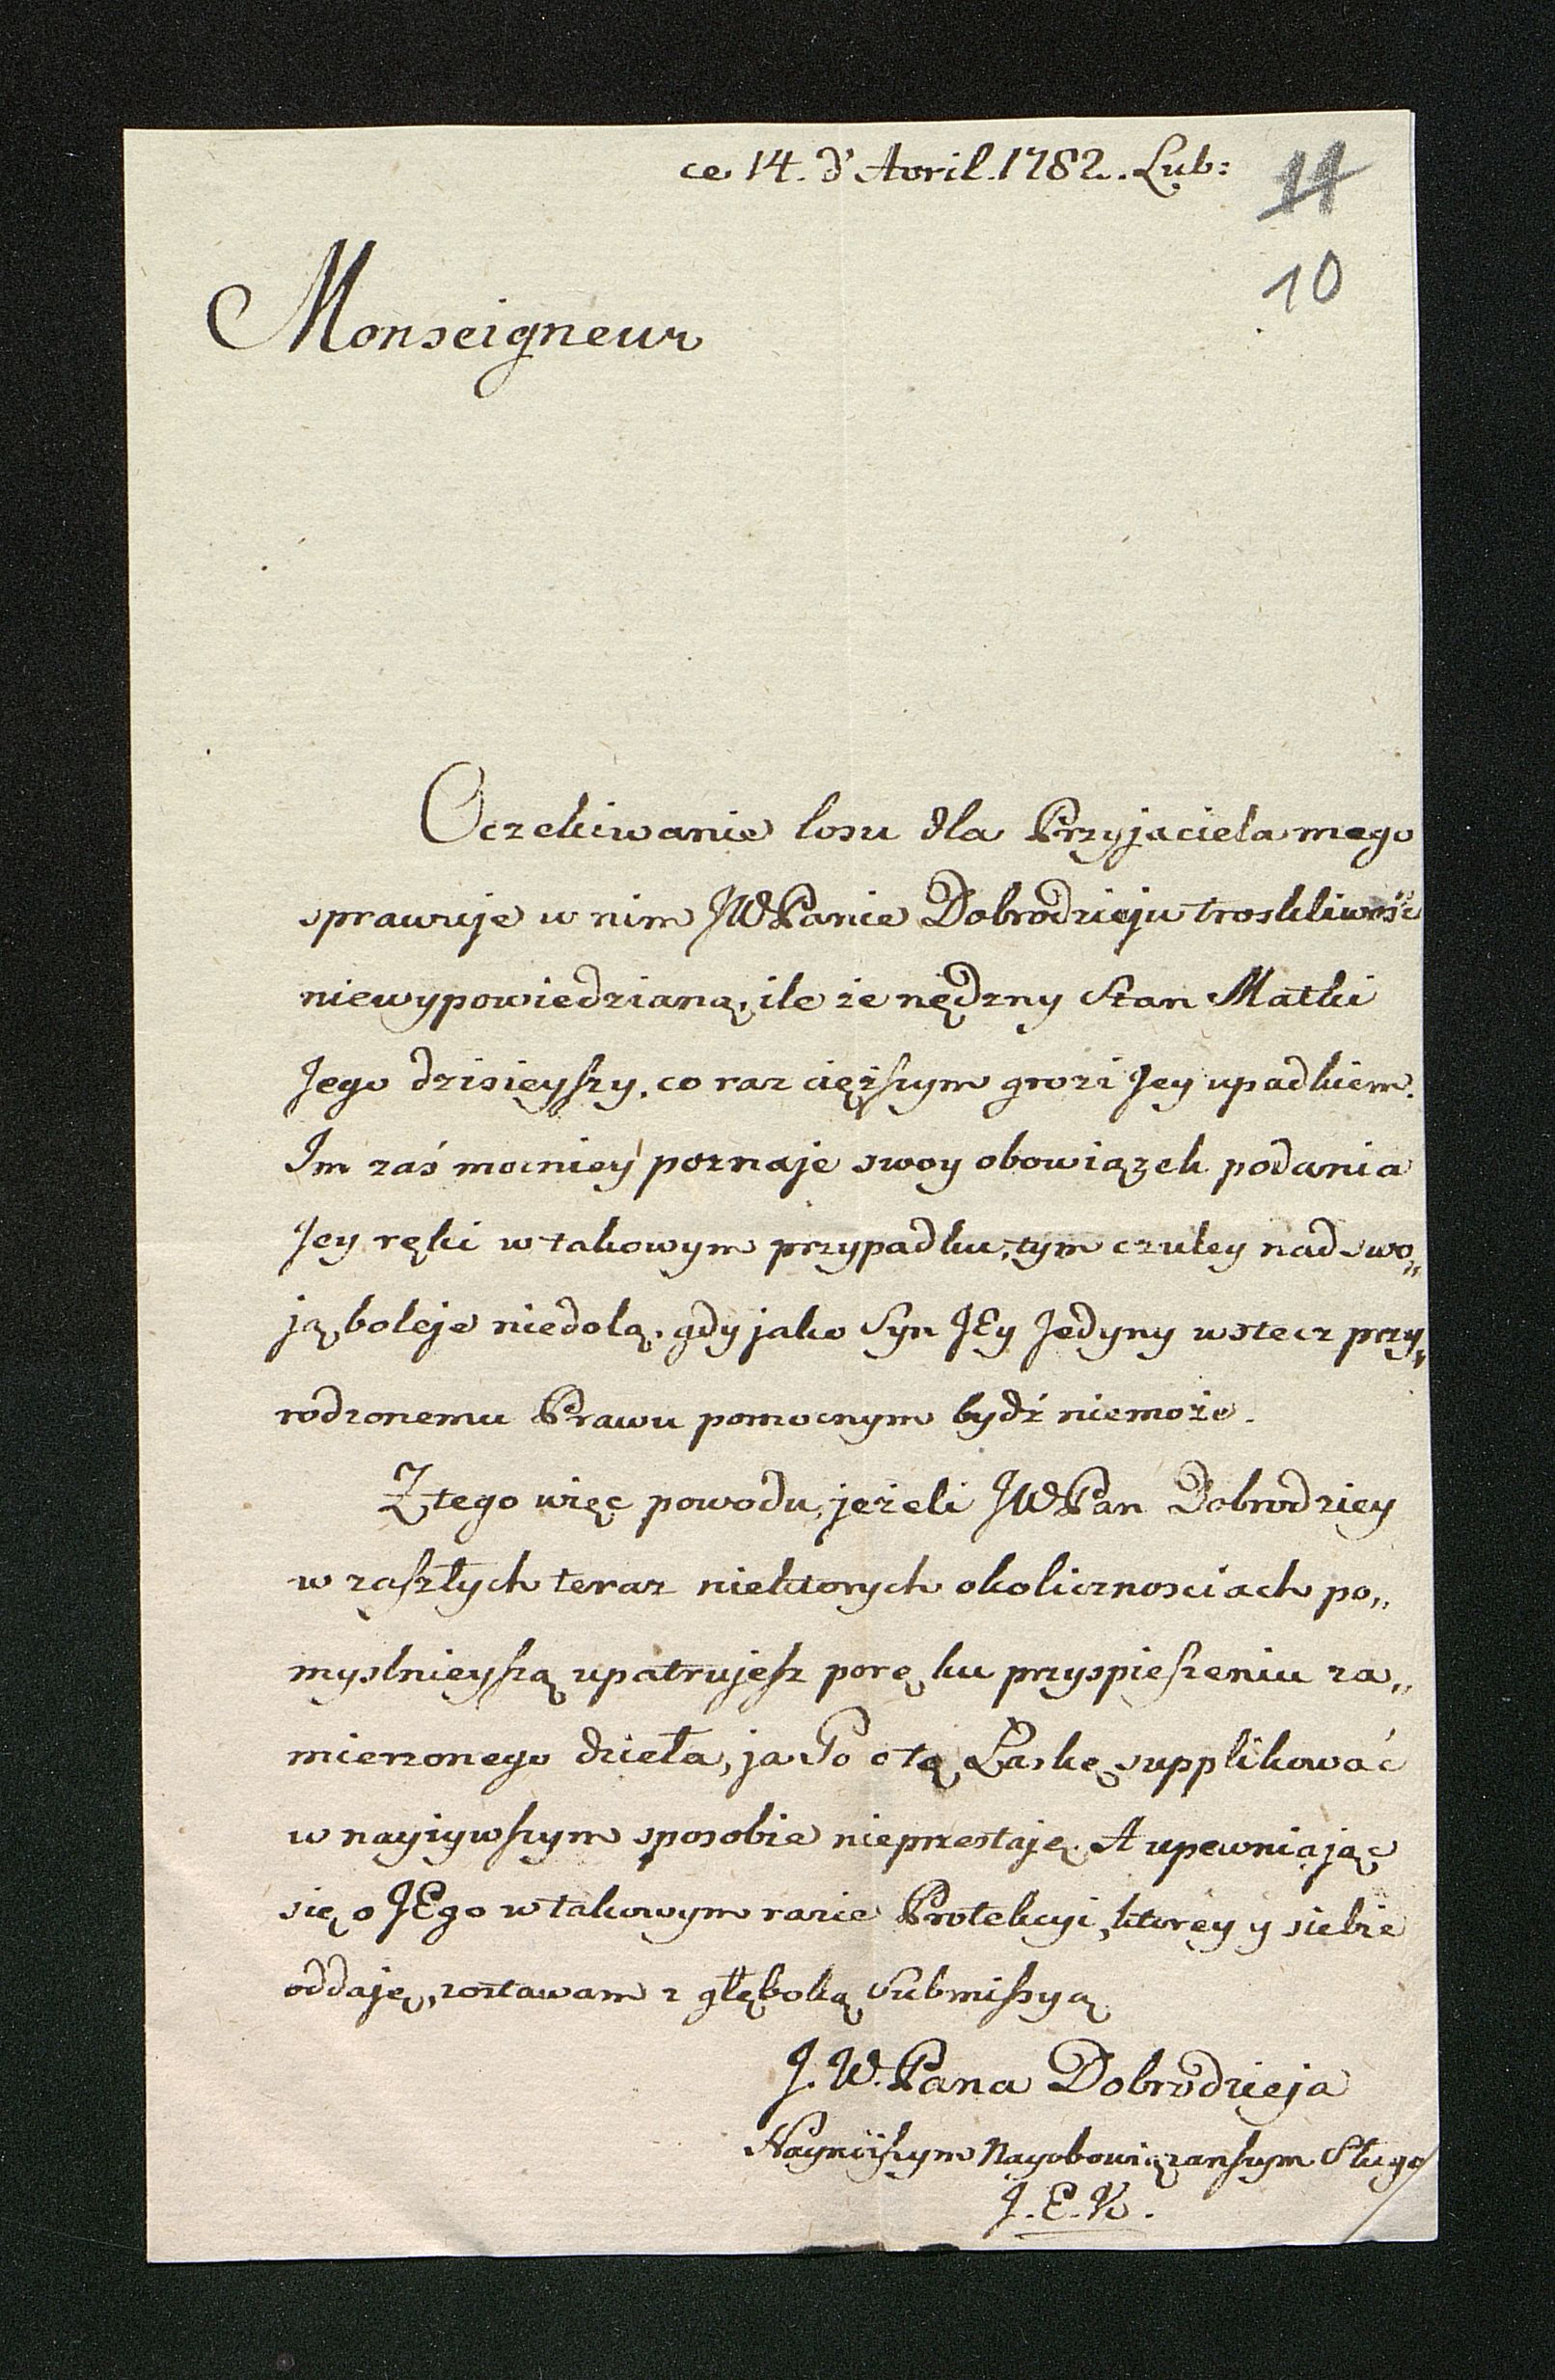 ce 14. d'Avril. 1782. Lub:
11
10
Monseigneur
Oczekiwanie losu dla Przyjaciela mego
sprawuje w nim JWPanie Dobrodzieju troskliwość
niewypowiedzianą, ile że nędzny Stan Matki
Jego dzisieyszy, co raz cięższym grozi Jey upadkiem.
Im zaś mocniey poznaje swoy obowiązek podania
Jey ręki w takowym przypadku, tym czuley nad swo„
ją boleje niedolą, gdy jako Syn JEy Jedyny wstecz przy„
rodzonemu Prawu pomocnym bydź niemoże.
Z tego więc powodu, jeżeli JWPan Dobrodziey
w zaszłych teraz niektorych okolicznosciach po„
myslnieyszą upatrujesz porę ku przyspieszeniu za„
mierzonego dzieła, ja Go o tą Łaskę supplikować
w nayżywszym sposobie nieprzestaję. A upewniając
się o JEgo w takowym razie Protekcyi, ktorey y siebie
oddaję, zostawam z głęboką Submissyą
J. W. Pana Dobrodzieja
Nayniższym Nayobowiązanszym Sługą
J. E. K.